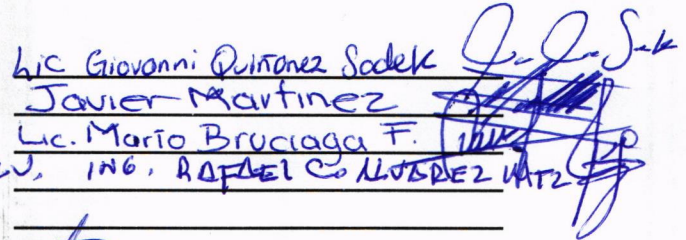 Lic Giovanni Quiñonez Sadek
Javier Martinez
Lic. Mario Bruciaga F.
ING. RAFAEL C. ALVAREZ